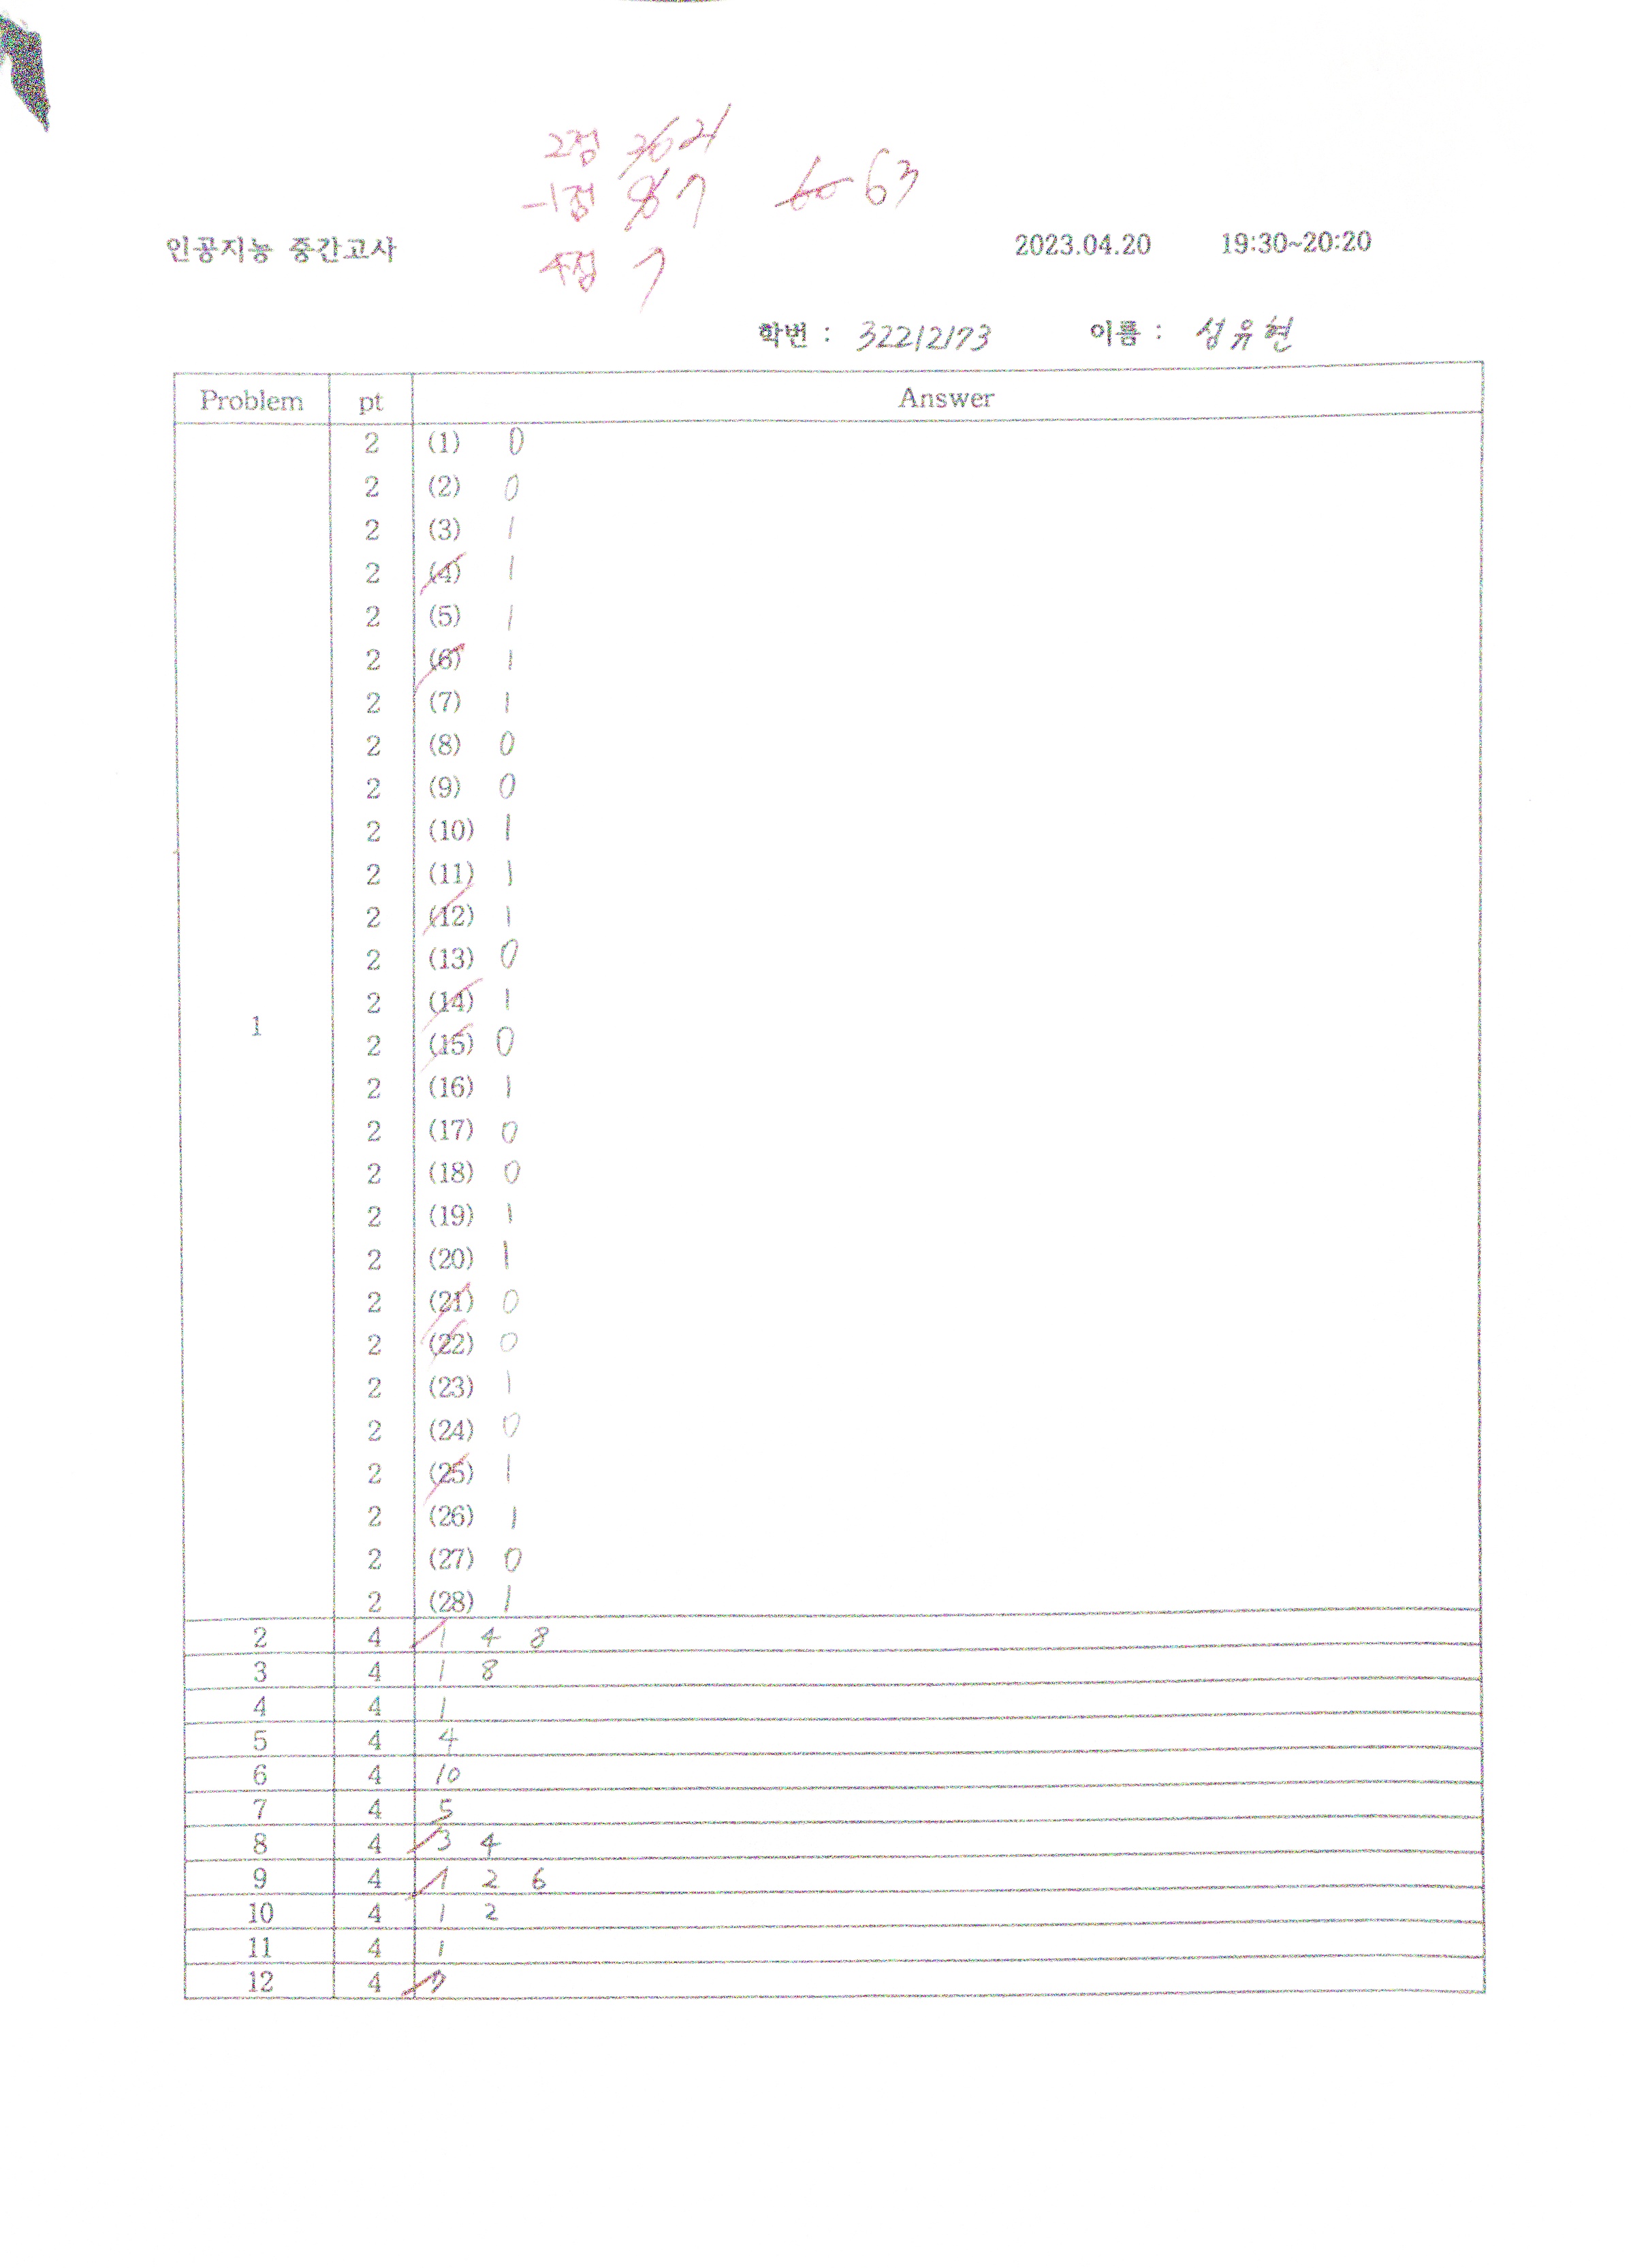 2점 21
-1점 7 63
4점 7
인공지능 중간고사 2023.04.20 19:30~20:20
학번 : 32212173 이름 : 성유현
Problem pt Answer
2 (1) 0
2 (2) 0
2 (3) 1
2 (4) 1
2 (5) 1
2 (6) 1
2 (7) 1
2 (8) 0
2 (9) 0
2 (10) 1
2 (11) 1
2 (12) 1
2 (13) 0
2 (14) 1
1 2 (15) 0
2 (16) 1
2 (17) 0
2 (18) 0
2 (19) 1
2 (20) 1
2 (21) 0
2 (22) 0
2 (23) 1
2 (24) 0
2 (25) 1
2 (26) 1
2 (27) 0
2 (28) 1
2 4 1 4 8
3 4 1 8
4 4 1
5 4 4
6 4 10
7 4 5
8 4 3 4
9 4 1 2 6
10 4 1 2
11 4 1
12 4 7